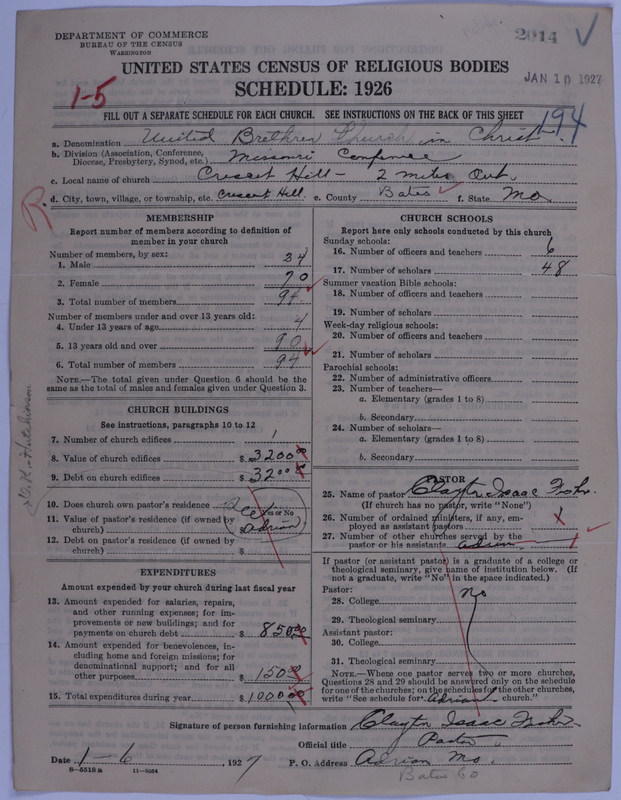 DEPARTMENT OF COMMERCE
BUREAU OF THE CENSUS
WASHINGTON
2014
JAN 10 1927
UNITED STATES CENSUS OF RELIGIOUS BODIES
SCHEDULE: 1926
1-5
194
FILL OUT A SEPARATE SCHEDULE FOR EACH CHURCH. SEE INSTRUCTIONS ON THE BACK OF THIS SHEET
a. Denomination United Brethren Church in Christ.
b. Division (Association, Conference, Diocese, Presbytery, Synod, etc.) Missouri Conference
c. Local name of church Crescent Hill - 2 miles Out.
d. City, town, village, or township, etc. Crescent Hill e. County Bates f. State Mo.
R
MEMBERSHIP
Report number of members according to definition of
member in your church
Number of members, by sex:
1. Male 24
2. Female 70
3. Total number of members 94
Number of members under and over 13 years old:
4. Under 13 years of age 4
5. 13 years old and over 90
6. Total number of members 94
NOTE.—The total given under Question 6 should be the
same as the total of males and females given under Question 3.
CHURCH BUILDINGS
See instructions, paragraphs 10 to 12
7. Number of church edifices 1
8. Value of church edifices $ 3200
9. Debt on church edifices $ 3200
10. Does church own pastor's residence
Yes or No
11. Value of pastor's residence (if owned by
church) $ Adrian
12. Debt on pastor's residence (if owned by
church) $
EXPENDITURES
Amount expended by your church during last fiscal year
13. Amount expended for salaries, repairs,
and other running expenses; for im-
provements or new buildings; and for
payments on church debt $ 850.00
14. Amount expended for benevolences, in-
cluding home and foreign missions; for
denominational support; and for all
other purposes $ 150
15. Total expenditures during year $ 1000.00
CHURCH SCHOOLS
Report here only schools conducted by this church
Sunday schools:
16. Number of officers and teachers 6
17. Number of scholars 48
Summer vacation Bible schools:
18. Number of officers and teachers
19. Number of scholars
Week-day religious schools:
20. Number of officers and teachers
21. Number of scholars
Parochial schools:
22. Number of administrative officers
23. Number of teachers—
a. Elementary (grades 1 to 8)
b. Secondary
24. Number of scholars—
a. Elementary (grades 1 to 8)
b. Secondary
PASTOR
25. Name of pastor Clayton Isaac
(If church has no pastor, write "None")
26. Number of ordained ministers, if any, em-
ployed as assistant pastors
27. Number of other churches served by the
pastor or his assistants Adrian 1
If pastor (or assistant pastor) is a graduate of a college or
theological seminary, give name of institution below. (If
not a graduate, write "No" in the space indicated.)
Pastor:
28. College No
29. Theological seminary
Assistant pastor:
30. College
31. Theological seminary
NOTE.—Where one pastor serves two or more churches,
Questions 28 and 29 should be answered only on the schedule
for one of the churches; on the schedules for the other churches,
write "See schedule for Adrian church."
Signature of person furnishing information Clayton Isaac
Official title Pastor
Date 1-6, 1927 P. O. Address Adrian Mo.
8—5518 a 11—9084
Bates Co